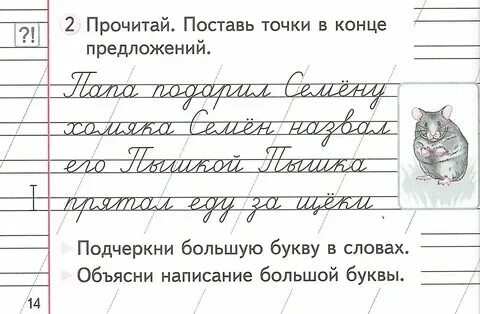 ?! 2 Прочитай. Поставь точки в конце
предложений.
Папа подарил Семёну
хомяка Семён назвал
его Пышкой Пышка
прятал еду за щёки
Подчеркни большую букву в словах.
Объясни написание большой буквы.
14